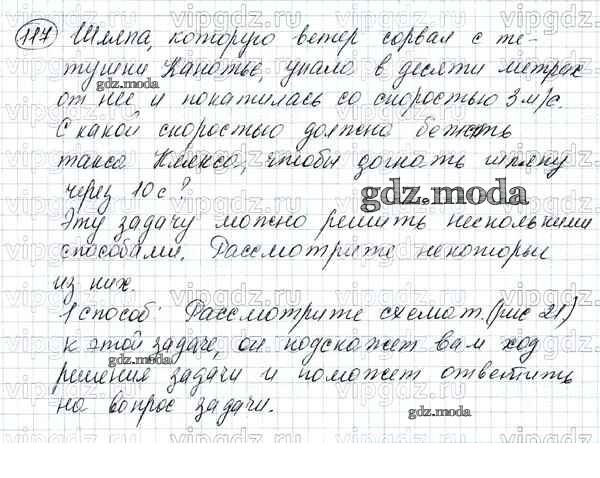 117 Шляпа, которую ветер сорвал с те-
тушки Канотье, упала в десяти метрах
от неё и покатилась со скоростью 3 м/с.
С какой скоростью должна бежать
такса Клякса, чтобы догнать шляпу
через 10 с?
Эту задачу можно решить несколькими
способами. Рассмотрите некоторые
из них.
1 способ: Рассмотрите схемат. (рис 21)
к этой задаче, он подскажет вам ход
решения задачи и поможет ответить
на вопрос задачи.
gdz.moda
gdz.moda
gdz.moda
gdz.moda
gdz.moda
vipgdz.ru